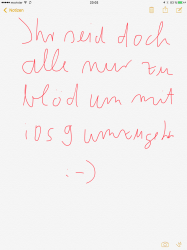 Notizen
Ihr seid doch
alle nur zu
blöd um mit
iOS 9 umzugehen
:-)